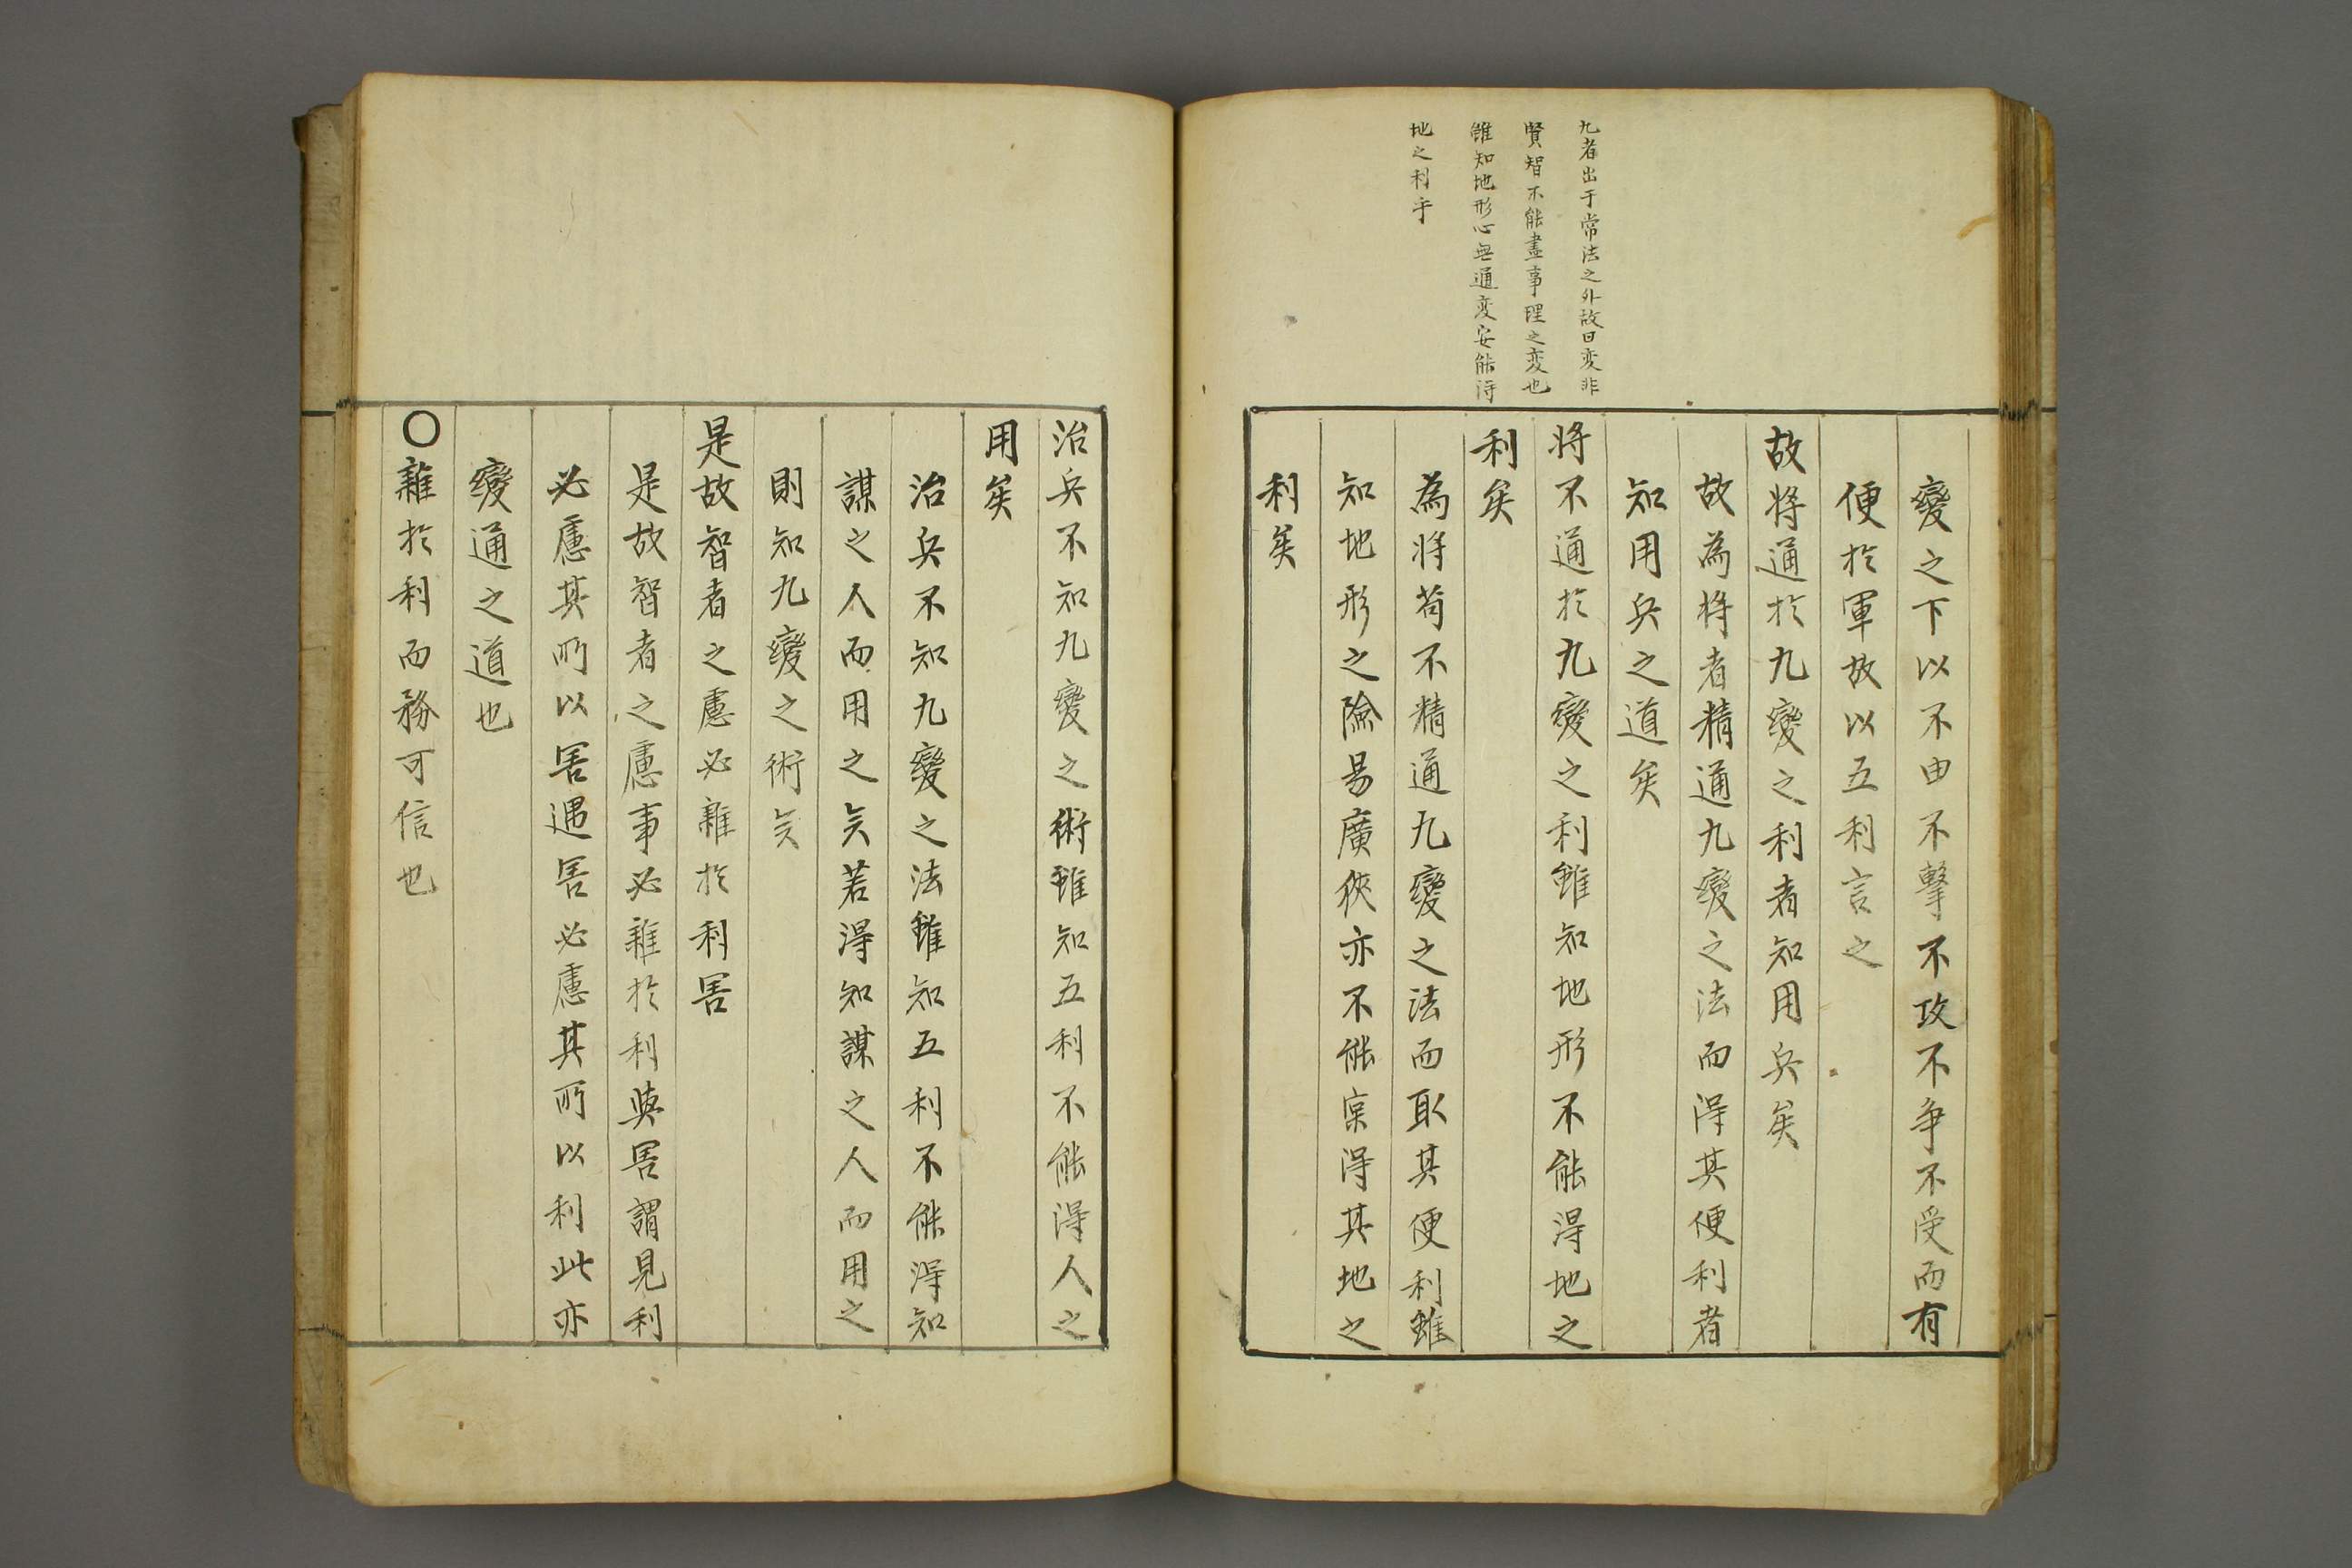 九者出于常法之外故曰变非
賢智不能盡事理之变也
雖知地形心无通变安能淂
地之利乎
變之下以不由不擊不攻不争不受而有
便扵軍故以五利言之
故将通扵九變之利者知用兵矣
故為将者精通九變之法而淂其便利者
知用兵之道矣
将不通扵九變之利雖知地形不能淂地之
利矣
為将苟不精通九變之法而取其便利雖
知地形之險易廣狹亦不能寔淂其地之
利矣
治兵不知九變之術雖知五利不能淂人之
用矣
治兵不知九變之法雖知五利不能淂知
謀之人而用之矣若淂知謀之人而用之
則知九變之術矣
是故智者之慮必雜扵利害
是故智者之慮事必雜扵利與害謂見利
必慮其所以害遇害必慮其所以利此亦
變通之道也
○雜扵利而務可信也